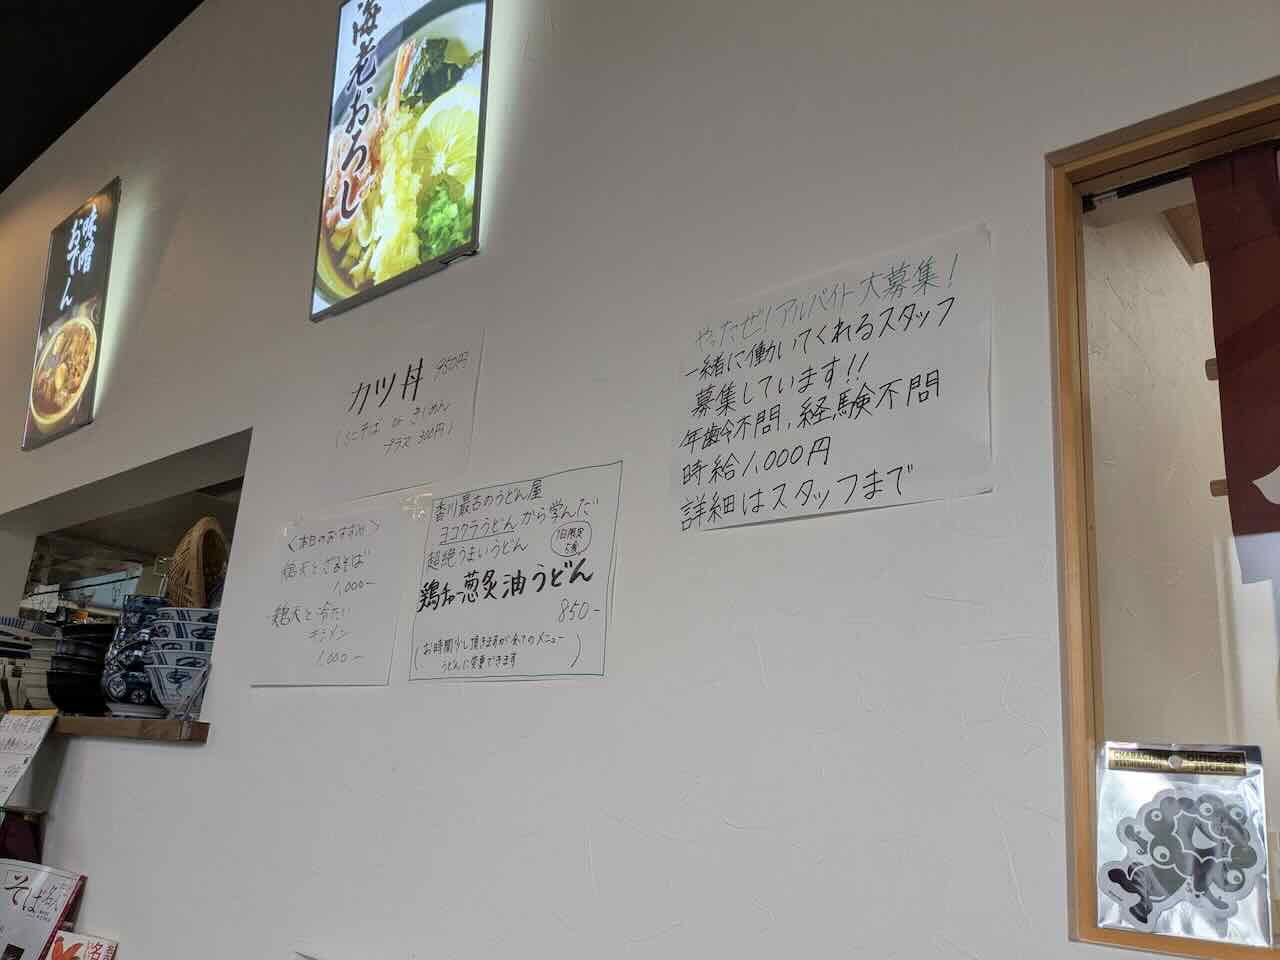 海老おろし
味噌
おでん
カツ丼 950円
(ミニそば or きしめん
プラス 300円)
やったぜ!アルバイト大募集!
一緒に働いてくれるスタッフ
募集しています!!
年齢不問,経験不問
時給1,000円
詳細はスタッフまで
<本日のおすすめ>
鶏天とざるそば
1,000-
鶏天と冷たい
キシメン
1,000-
香川最古のうどん屋
ヨコクラうどんから学んだ
超絶うまいうどん
1日限定
5食
鶏チャー葱炙油うどん
850-
(お時間少し頂きますが全てのメニュー
うどんに変更できます)
そば名人